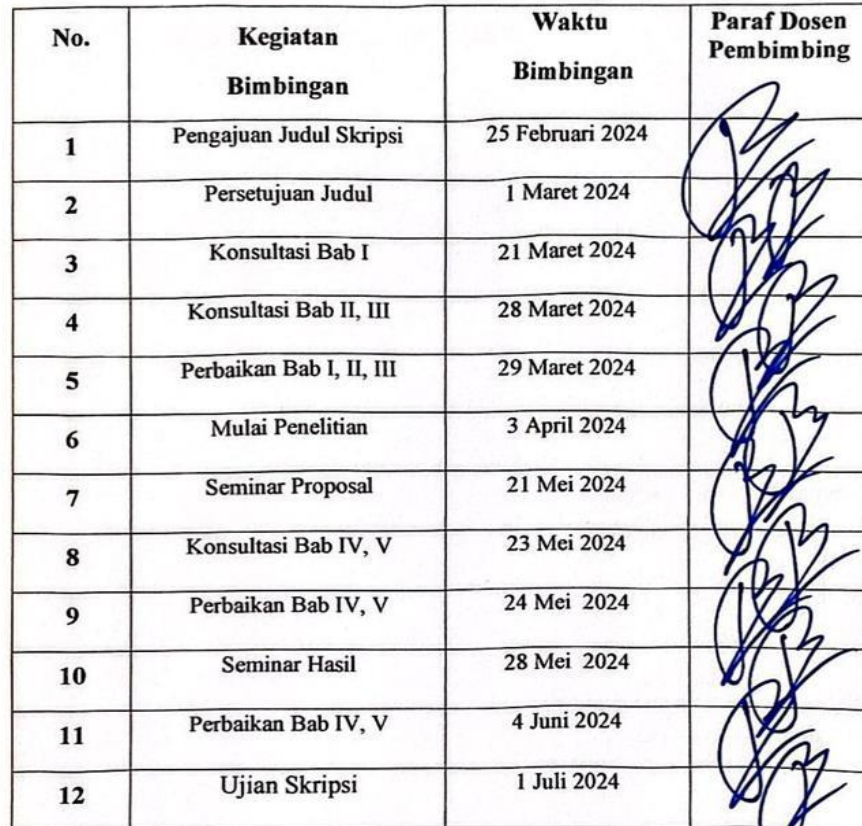 No.
Kegiatan
Bimbingan
Waktu
Bimbingan
Paraf Dosen
Pembimbing
1 Pengajuan Judul Skripsi 25 Februari 2024
2 Persetujuan Judul 1 Maret 2024
3 Konsultasi Bab I 21 Maret 2024
4 Konsultasi Bab II, III 28 Maret 2024
5 Perbaikan Bab I, II, III 29 Maret 2024
6 Mulai Penelitian 3 April 2024
7 Seminar Proposal 21 Mei 2024
8 Konsultasi Bab IV, V 23 Mei 2024
9 Perbaikan Bab IV, V 24 Mei 2024
10 Seminar Hasil 28 Mei 2024
11 Perbaikan Bab IV, V 4 Juni 2024
12 Ujian Skripsi 1 Juli 2024